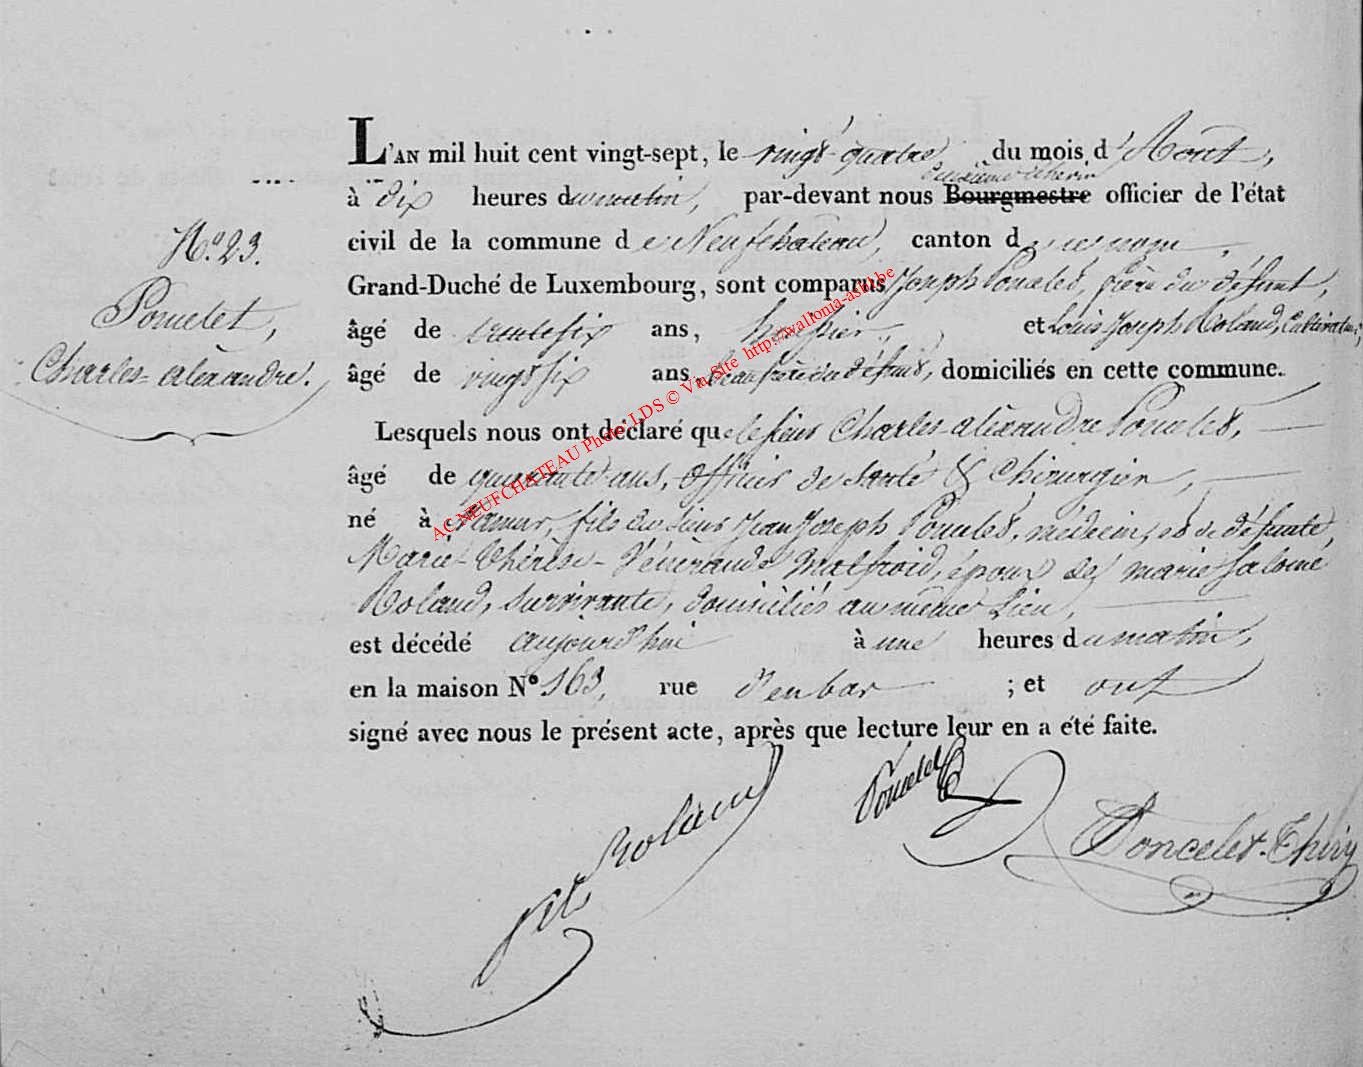 L'AN mil huit cent vingt-sept, le vingt-quatre, du mois d'Aout,
deuxième échevin
à dix heures du matin, par-devant nous Bourgmestre officier de l'état
civil de la commune de Neufchateau, canton de ce nom
Grand-Duché de Luxembourg, sont comparus Joseph Poncelet, frère du défunt,
âgé de trente six ans, huissier, et Louis Joseph Roland, Cultivateur,
âgé de vingt six ans, beau frère du défunt, domiciliés en cette commune.
Lesquels nous ont déclaré que le sieur Charles-alèxandre Poncelet,
âgé de quarante ans, officier de Santé & Chirurgien,
né à Namur, fils du sieur Jean Joseph Poncelet, médecin, et de défunte,
Marie-Thérèse-Vénérande Malfroid, époux de marie Salomé
Roland, survivante, domiciliés au même Lieu,
est décédé aujourd'hui à une heures du matin,
en la maison N° 163, rue d'enbas ; et ont
signé avec nous le présent acte, après que lecture leur en a été faite.
N.° 23.
Poncelet,
Charles-alèxandre.
AC NEUFCHATEAU Photo: LDS © Via Site http://wallonia-asbl.be
Roland
Poncelet
Poncelet-Thiry